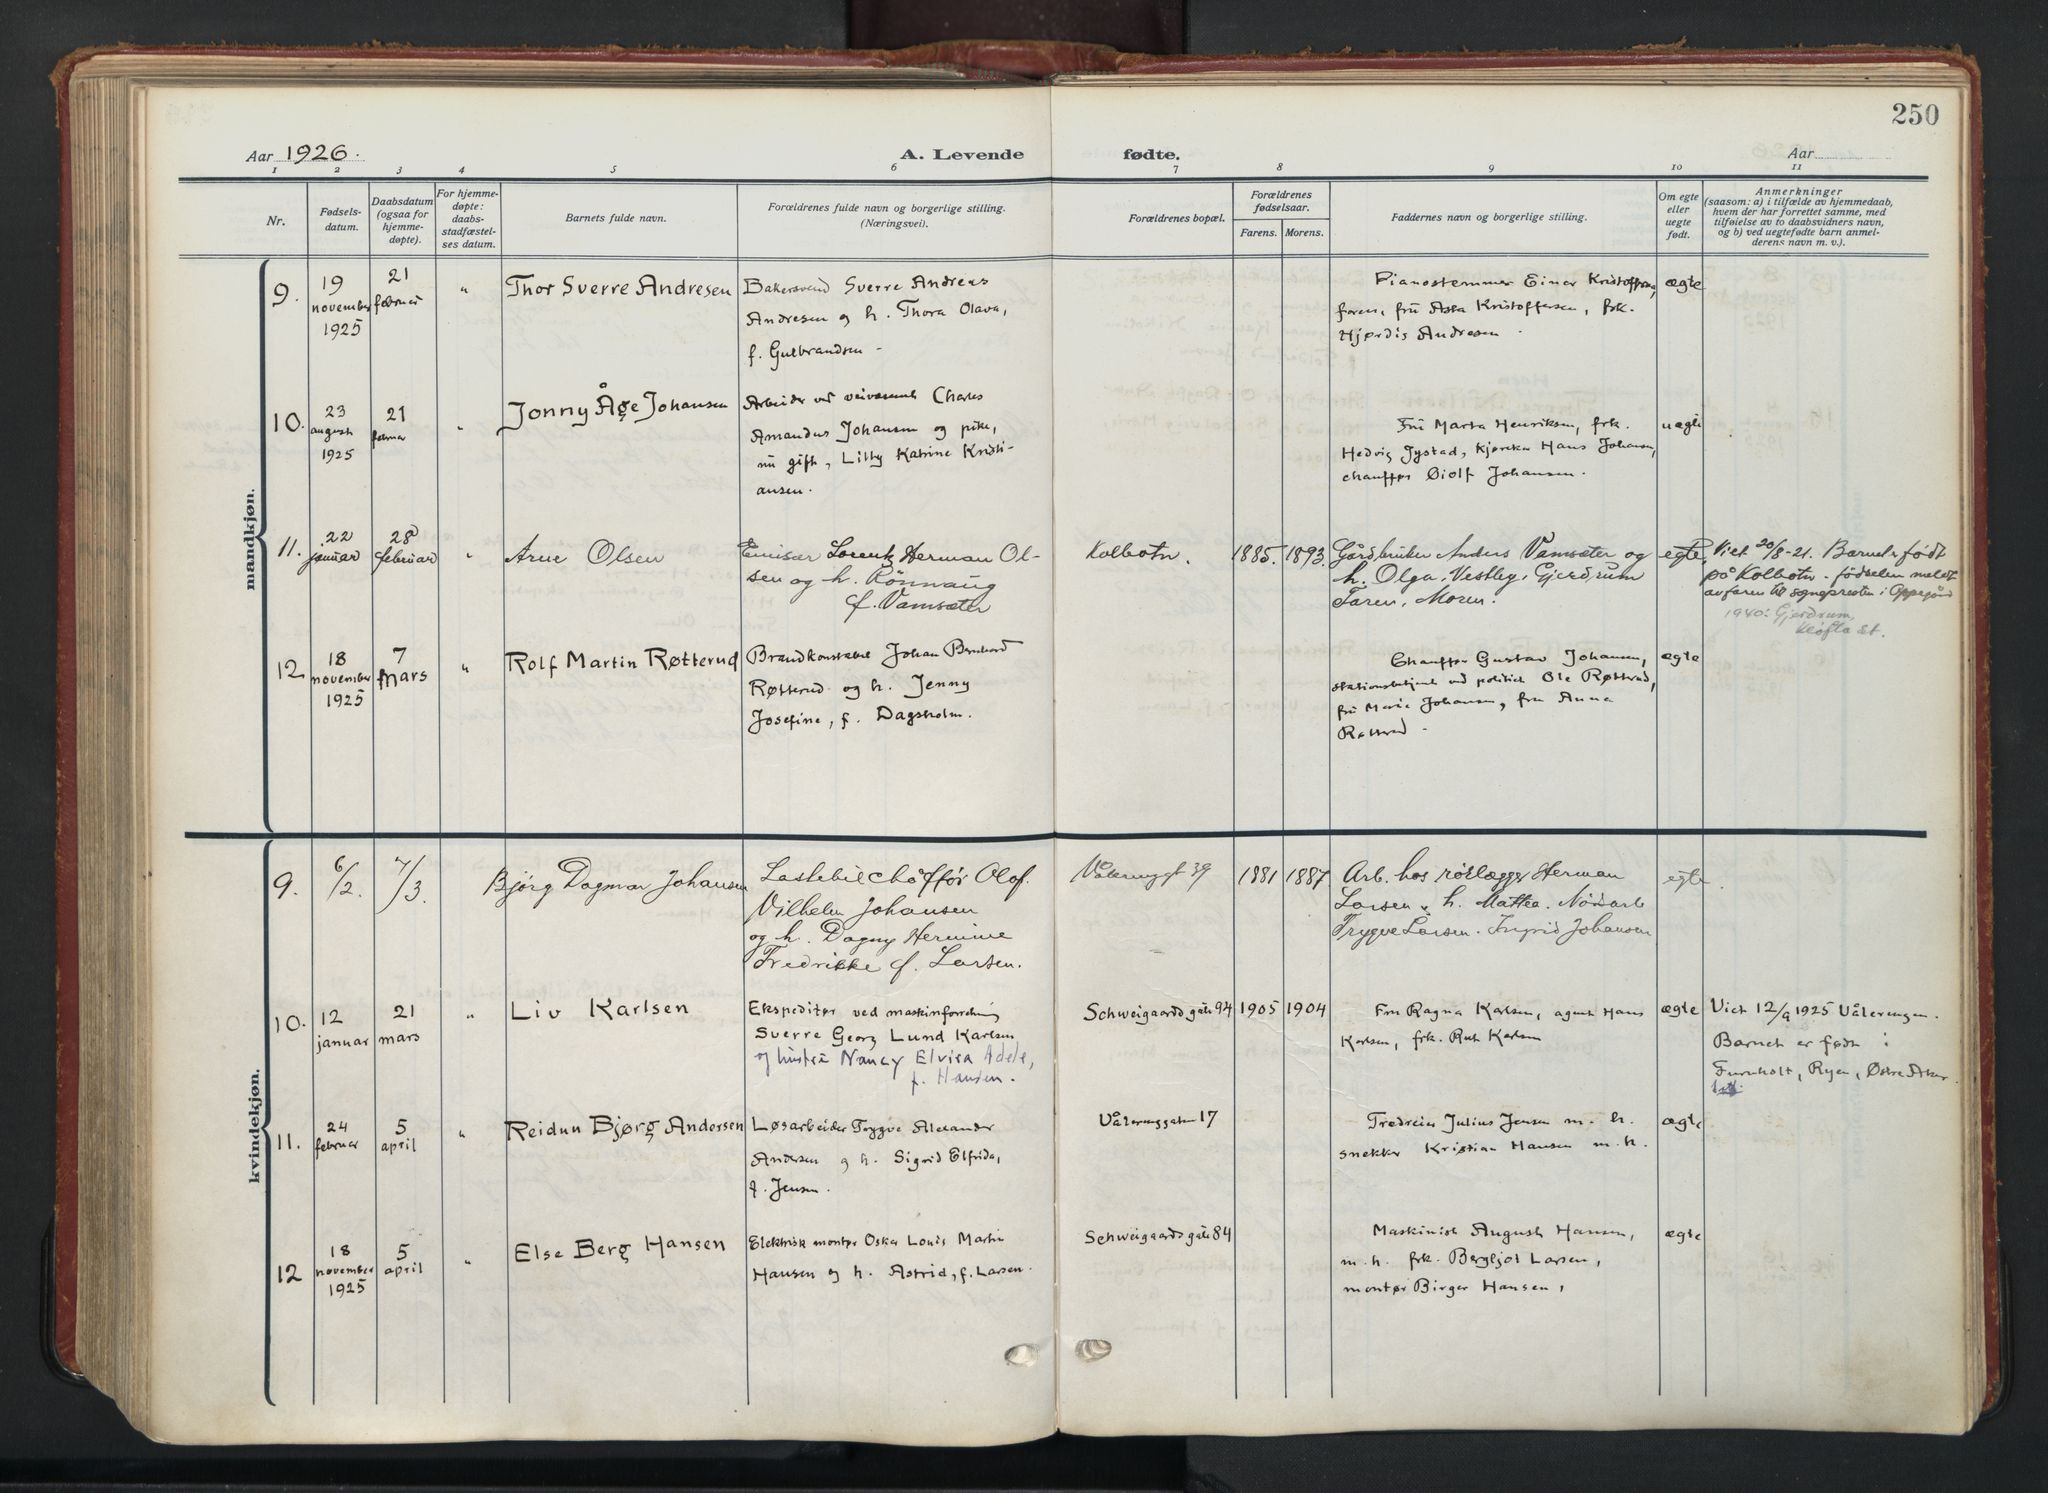 250
Aar 1926. A. Levende fødte. Aar
1 2 3 4 5 6 7 8 9 10 11
Nr.
Fødsels-
datum.
Daabsdatum
(ogsaa for
hjemme-
døpte).
For hjemme-
døpte:
daabs-
stadfæstel-
ses datum.
Barnets fulde navn.
Forældrenes fulde navn og borgerlige stilling.
(Næringsvei).
Forældrenes bopæl.
Forældrenes
fødselsaar.
Farens. Morens.
Faddernes navn og borgerlige stilling.
Om egte
eller
uegte
født.
Anmerkninger
(saasom: a) i tilfælde av hjemmedaab,
hvem der har forrettet samme, med
tilføielse av to daabsvidners navn,
og b) ved uegtefødte barn anmel-
derens navn m. v.).
mandkjøn.
9.
19
november
1925
21
februar
"
Thor Sverre Andresen
Bakersvend Sverre Andreas
Andresen og h. Thora Olava,
f. Gulbrandsen
Pianostemmer Einar Kristoffersen,
faren, frü Asta Kristoffersen, frk.
Hjørdis Andresen
ægte
10.
23
august
1925
21
februar
"
Jonny Åge Johansen
Arbeider ved veivæsenet Charles
Amandus Johansen og pike,
nu gift, Lilly Katrine Kristi-
ansen.
Frü Marta Henriksen, frk.
Hedvig Jystad, kjøreker Hans Johansen,
chauffør Øiolf Johansen.
uægte
11.
22
januar
28
februar
"
Arne Olsen
Emisær Lorentz Herman Ol-
sen og h. Rönnaug
f. Vamsæter
Kolbotn.
1885. 1893.
Gårdbruker Anders Vamsæter og
h. Olga, Vestby, Gjerdrum
Faren, Moren.
egte
Viet 20/8-21. Barnet er født
på Kolbotn. fødselen meldt
av faren til sognepresten i Oppegård
1940: Gjerdrum,
Kløfta st.
12.
18
november
1925
7
mars
"
Rolf Martin Røtterud
Brandkonstabel Johan Bernhard
Røtterud og h. Jenny
Josefine, f. Dagsholm.
Chauffør Gustav Johansen,
stationsbetjent ved politiet Ole Røtterud,
frü Marie Johansen, fru Anna
Røtterud
ægte
kvindekjøn.
9.
6/2.
7/3.
Bjørg Dagmar Johansen
Lastebilchåffør Olof
Vilhelm Johansen
og h. Dagny Hermine
Fredrikke f. Larsen.
Vålerenggt 39
1881 1887
Arb. hos rörlægger Herman
Larsen & h. Mattea.
Trygve Larsen. Ingrid Johansen
egte.
10.
12
januar
21
mars
"
Liv Karlsen
Ekspeditør ved maskinforretning
Sverre Georg Lund Karlsen
og hustru Nancy Elvira Adele,
f. Hansen.
Schweigaardsgate 94
1905 1904
Fru Ragna Karlsen, agent Hans
Karlsen, frk. Rut Karlsen
ægte
Viet 12/9 1925 Vålerengen.
Barnet er født i
Furuholt, Ryen, Østre Aker
11.
24
februar
5
april
"
Reidun Bjørg Andersen
Løsarbeider Trygve Alexander
Andersen og h. Sigrid Elfrida,
f. Jensen.
Vålerenggaten 17
Julius Jensen m. h.
snekker Kristian Hansen m. h.
ægte
12
18
november
1925
5
april
"
Else Berg Hansen
Elektrisk montør Oskar Louis Martin
Hansen og h. Astrid, f. Larsen.
Schweigaardsgate 84
Maskinist August Hansen,
m. h. frk. Bergljot Larsen,
montør Birger Hansen,
ægte